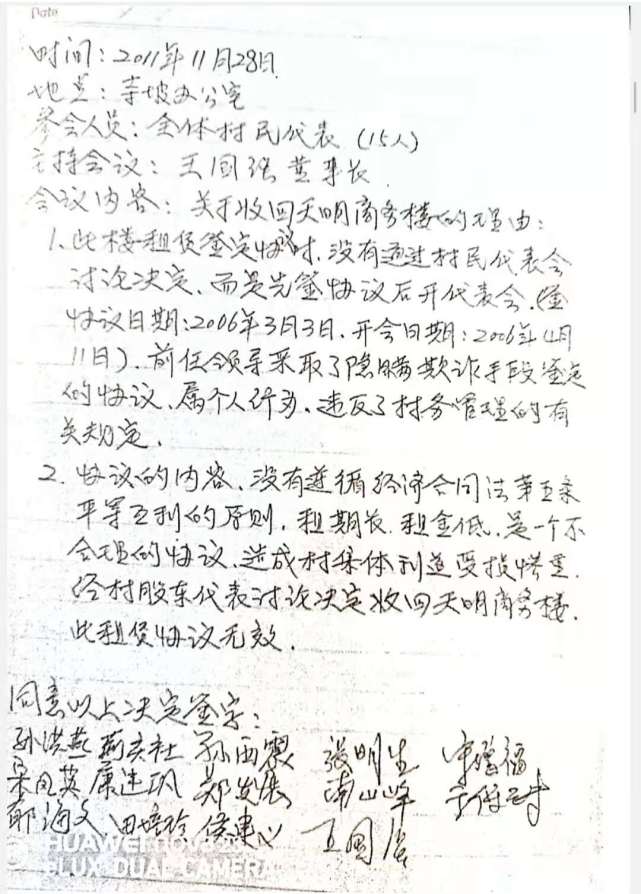 Date
时间：2011年11月28日
地点：寺坡办公室
参会人员：全体村民代表（15人）
主持会议：王国强董事长
会议内容：关于收回天明商务楼的理由：
1、此楼租赁签定协议时，没有通过村民代表会
讨论决定、而是先签协议后开代表会、（签
协议日期：2006年3月3日、开会日期：2006年4月
11日）、前任领导采取了隐瞒欺诈手段签定
的协议、属个人行为、违反了村务管理的有
关规定、
2、协议的内容、没有遵循经济合同法第五条
平等互利的原则，租期长、租金低、是一个不
合理的协议、造成村集体利益受损惨重、
经村股东代表讨论决定收回天明商务楼、
此租赁协议无效、
同意以上决定签字：
孙洪燕 孙雨霞 张明生
宋凤英 郑发展 南山峰
郁海文 田培玲 侯建义 王国强
HUAWEI nova
FLUX DUAL CAMERA